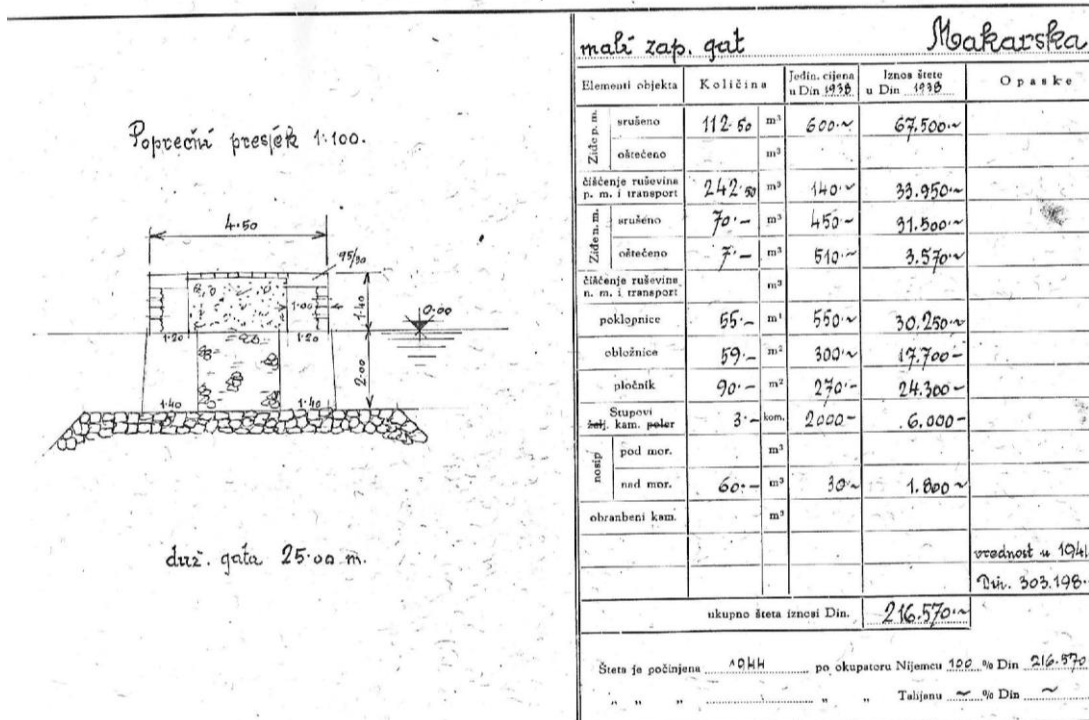 Poprečni presjek 1:100.
4.50
95/30
1.00
1.40
0.00
1.20
1.20
2.00
1.40
1.40
duž. gata 25.00 m.
mali zap. gat Makarska
Elementi objekta Količina Jedin. cijena u Din 1938 Iznos štete u Din 1938 Opaske
Ziđe p. m. srušeno 112.50 m³ 600.~ 67.500.~
oštećeno m³
čišćenje ruševina p. m. i transport 242.50 m³ 140.~ 33.950.~
Ziđe n. m. srušeno 70.- m³ 450.~ 31.500.~
oštećeno 7.- m³ 510.~ 3.570.~
čišćenje ruševina n. m. i transport m³
poklopnice 55.- m¹ 550.~ 30.250.~
obložnice 59.- m² 300.~ 17.700-
pločnik 90.- m² 270.- 24.300-
Stupovi želj. kam. poler 3.- kom. 2000- 6.000-
nosip pod mor. m³
nad mor. 60.- m³ 30.~ 1.800~
obranbeni kam. m³
vrednost u 1941
Din. 303.198.
ukupno šteta iznosi Din. 216.570.~
Šteta je počinjena 1944 po okupatoru Nijemcu 100 % Din 216.570
„ „ „ „ „ Talijanu ~ % Din ~